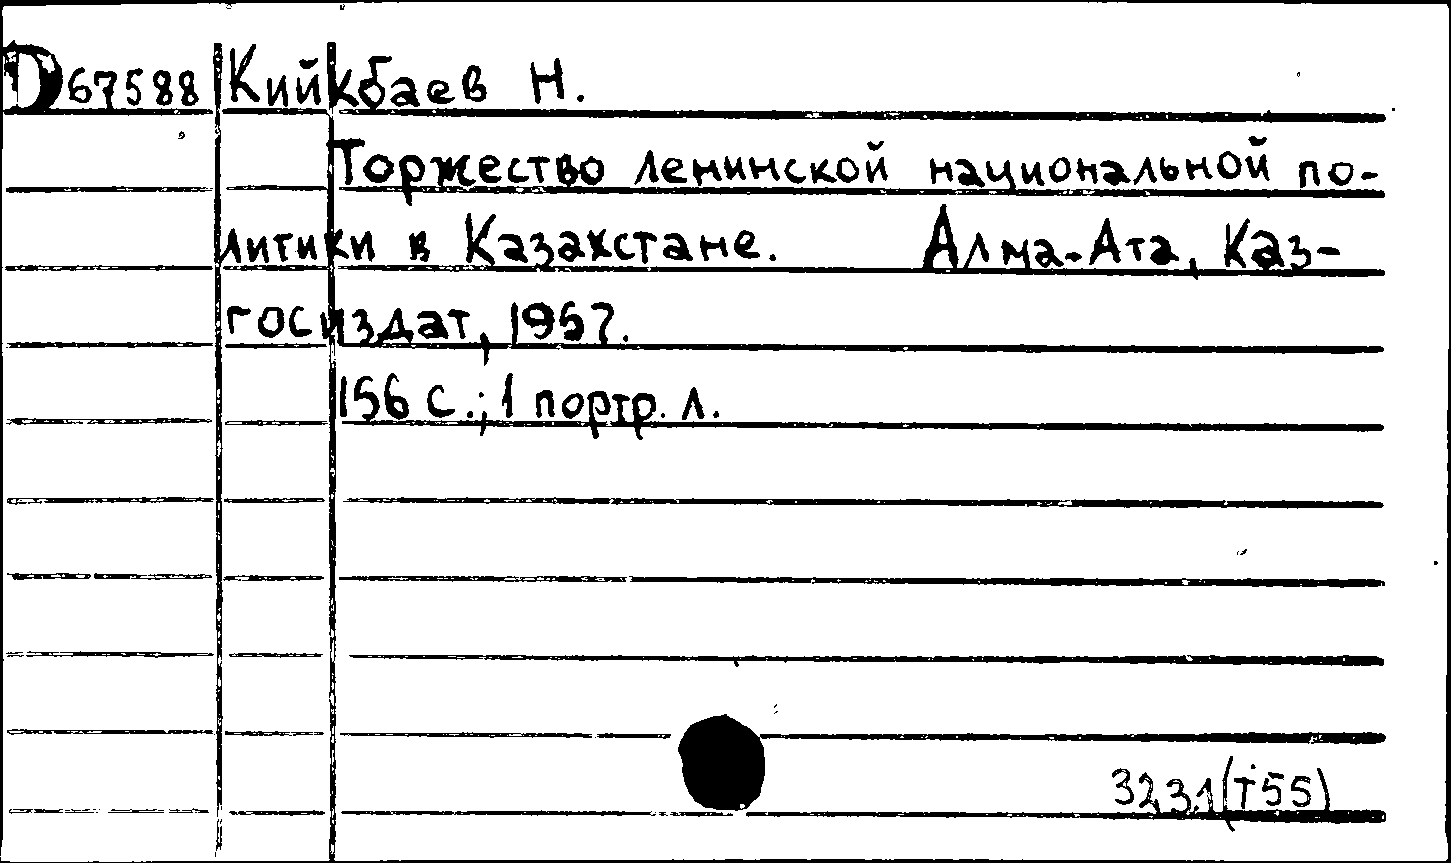 D67588 Кийкбаев Н.
Торжество ленинской национальной по-
литики в Казахстане. Алма-Ата, Каз-
госиздат, 1957.
156 с.; 1 портр. л.
323.1(Т55)